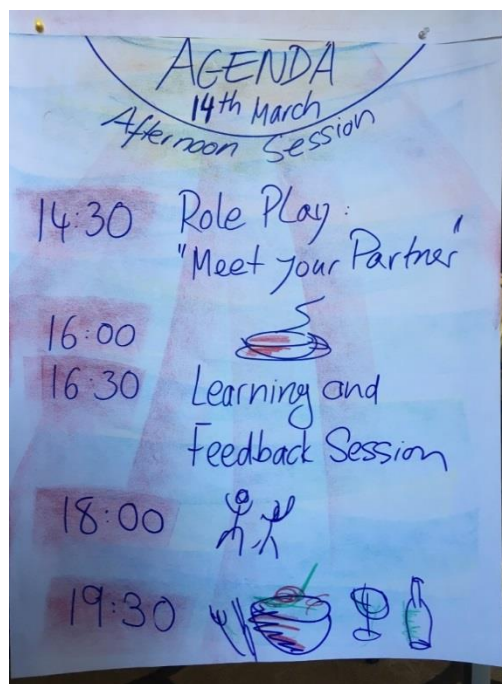 AGENDA
14th March
Afternoon Session
14:30 Role Play:
"Meet your Partner"
16:00
16:30 Learning and
Feedback Session
18:00
19:30